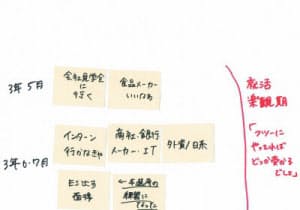 3年5月
会社見学会
に
行く
食品メーカー
いいなぁ
就活
楽観期
「フツーに
やってれば
どっか受かる
でしょ」
3年6・7月
インターン
行かなきゃ
商社・銀行
メーカー・IT
外資/日系
面接